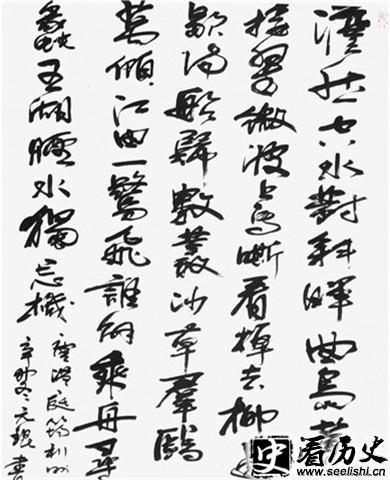 澹然空水對斜暉曲島蒼
接翠微波上馬嘶看棹去柳邊
歇待船歸數叢沙草羣鷗
萬傾江田一鷺飛誰解乘舟尋
蠡五湖煙水獨忘機
唐溫庭筠利州
辛卯冬元書
史 看历史
www.seelishi.cn